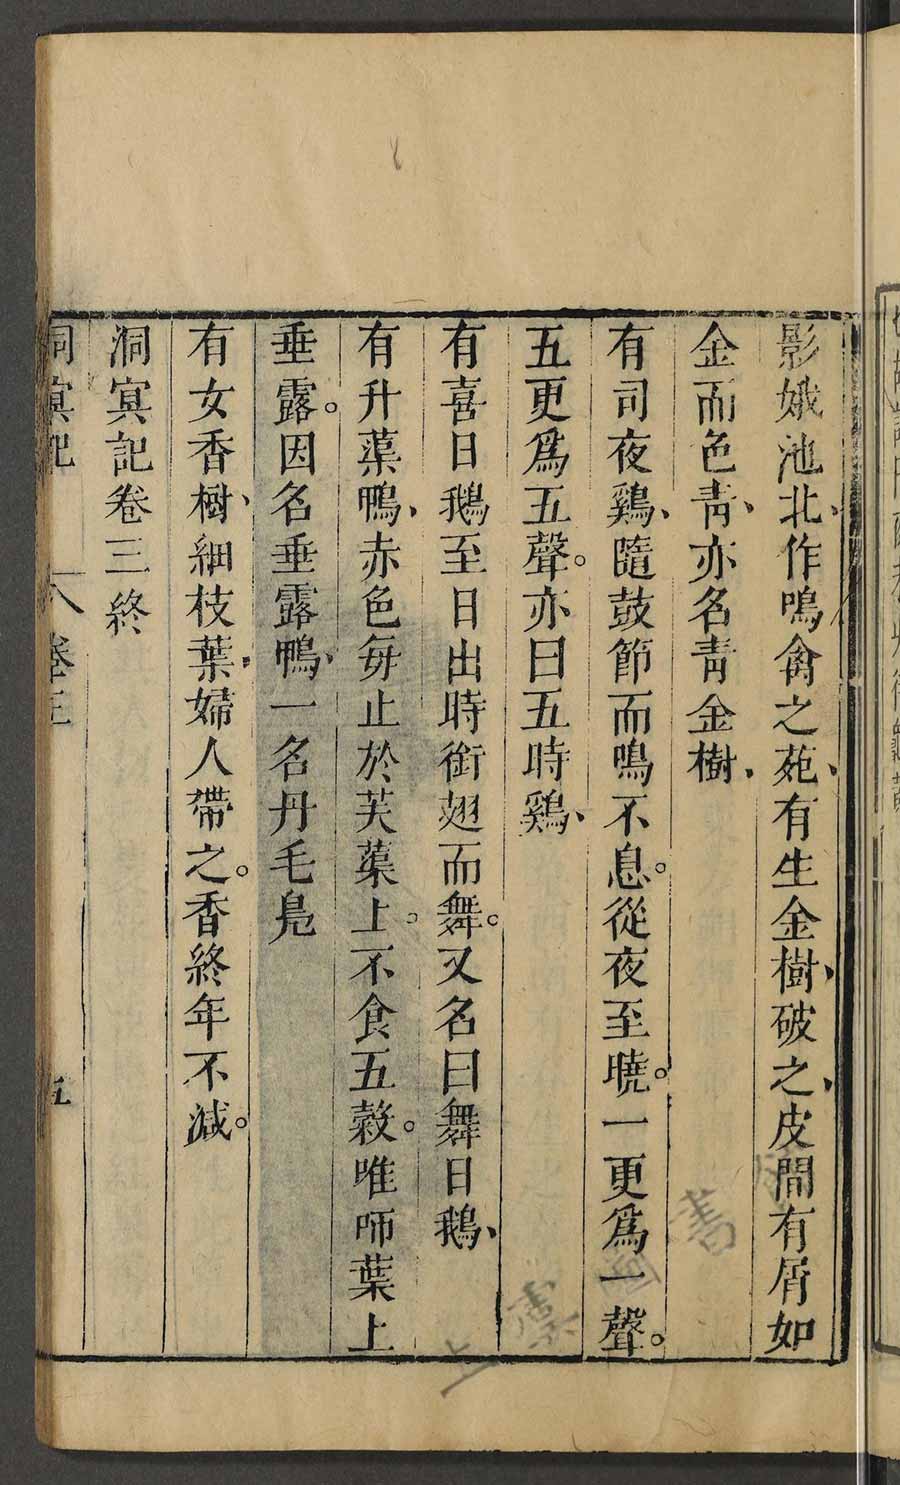 影娥池北、作鳴禽之苑、有生金樹、破之、皮間有屑如
金而色青、亦名青金樹、
有司夜鷄、隨鼓節而鳴不息。從夜至曉。一更爲一聲。
五更爲五聲。亦曰五時鷄、
有喜日鵝至日出時銜翅而舞。又名曰舞日鵝、
有升蕖鴨、赤色每止於芙蕖上。不食五穀。唯咂葉上
垂露。因名垂露鴨、一名丹毛鳧
有女香樹、細枝葉、婦人帶之。香終年不減。
洞冥記卷三終
洞冥記 卷三 五